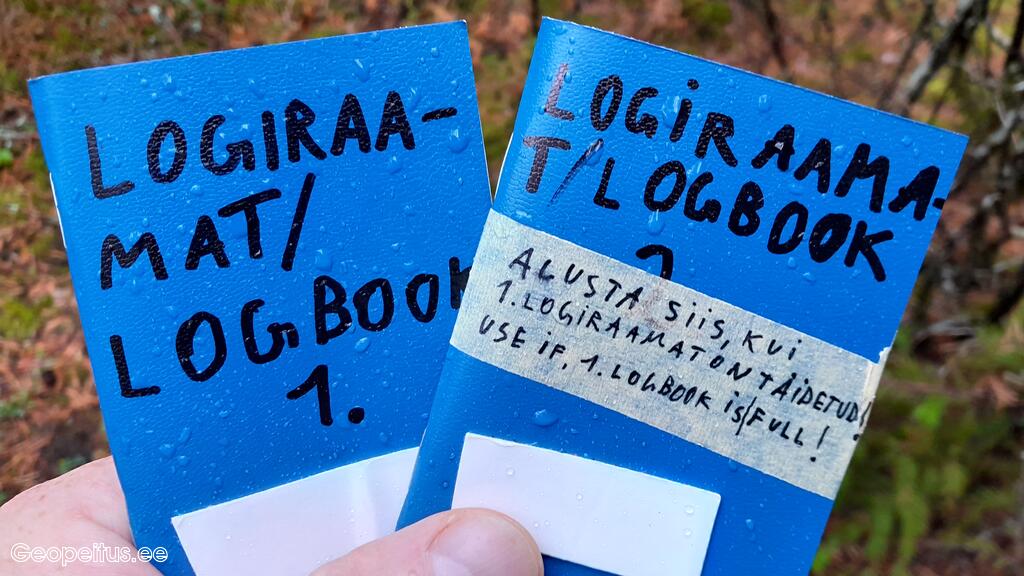 LOGIRAA-
MAT/
LOGBOOK
1.
LOGIRAAMA-
T/LOGBOOK
ALUSTA SIIS, KUI
1. LOGIRAAMAT ON TÄIDETUD!
USE IF, 1. LOGBOOK IS FULL!
Geopeitus.ee